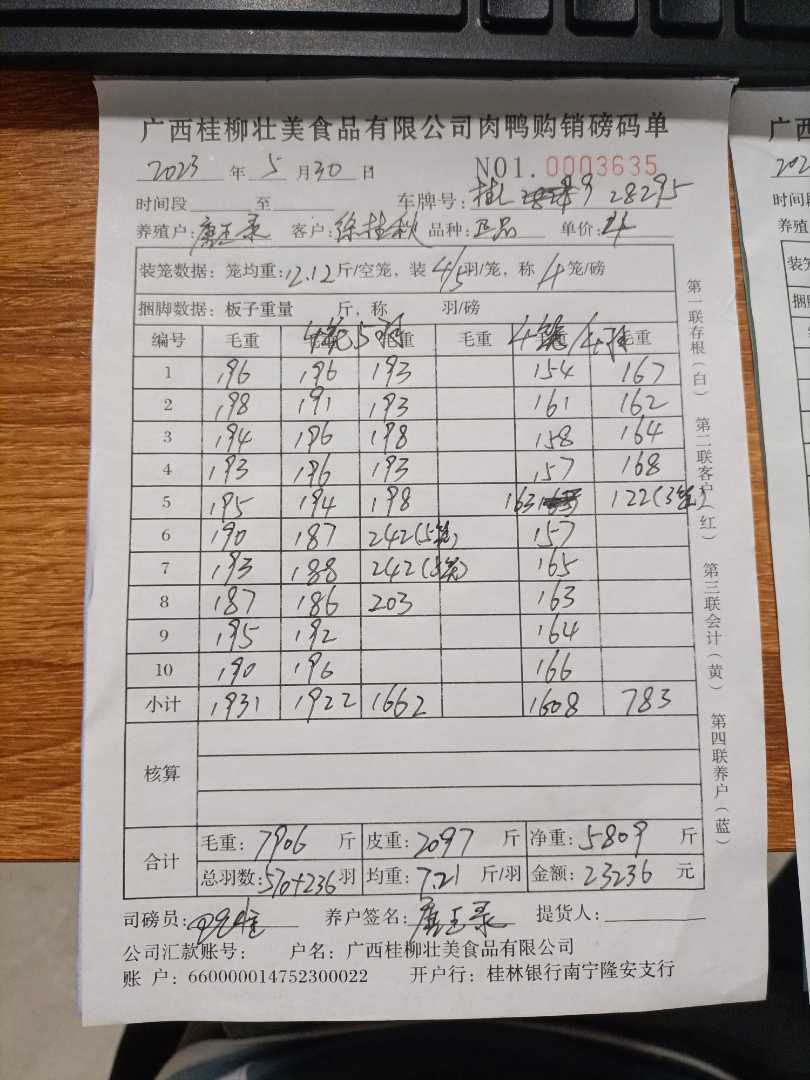 广西桂柳壮美食品有限公司肉鸭购销磅码单
2023 年 5 月 30 日 NO1.0003635
时间段 至 车牌号: 桂L 28295
养殖户: 客户: 徐桂秋 品种: 正品 单价: 4
装笼数据: 笼均重: 12.12 斤/空笼, 装 4/5 羽/笼, 称 4 笼/磅
捆脚数据: 板子重量 斤, 称 羽/磅
编号 毛重 4笼5羽 毛重 毛重 4笼/4羽 毛重
1 196 196 193 154 167
2 198 191 193 161 162
3 194 196 198 158 164
4 193 196 193 157 168
5 195 194 198 163 122(3笼)
6 190 187 242(5笼) 157
7 193 188 242(5笼) 165
8 187 186 203 163
9 195 192 164
10 190 196 166
小计 1931 1922 1662 1608 783
核算
合计 毛重: 7906 斤 皮重: 2097 斤 净重: 5809 斤
总羽数: 570+236 羽 均重: 7.21 斤/羽 金额: 23236 元
司磅员: 养户签名: 提货人:
公司汇款账号: 户名: 广西桂柳壮美食品有限公司
账 户: 660000014752300022 开户行: 桂林银行南宁隆安支行
第一联存根(白) 第二联客户(红) 第三联会计(黄) 第四联养户(蓝)
广西
202
时间
养殖
装笼
捆脚